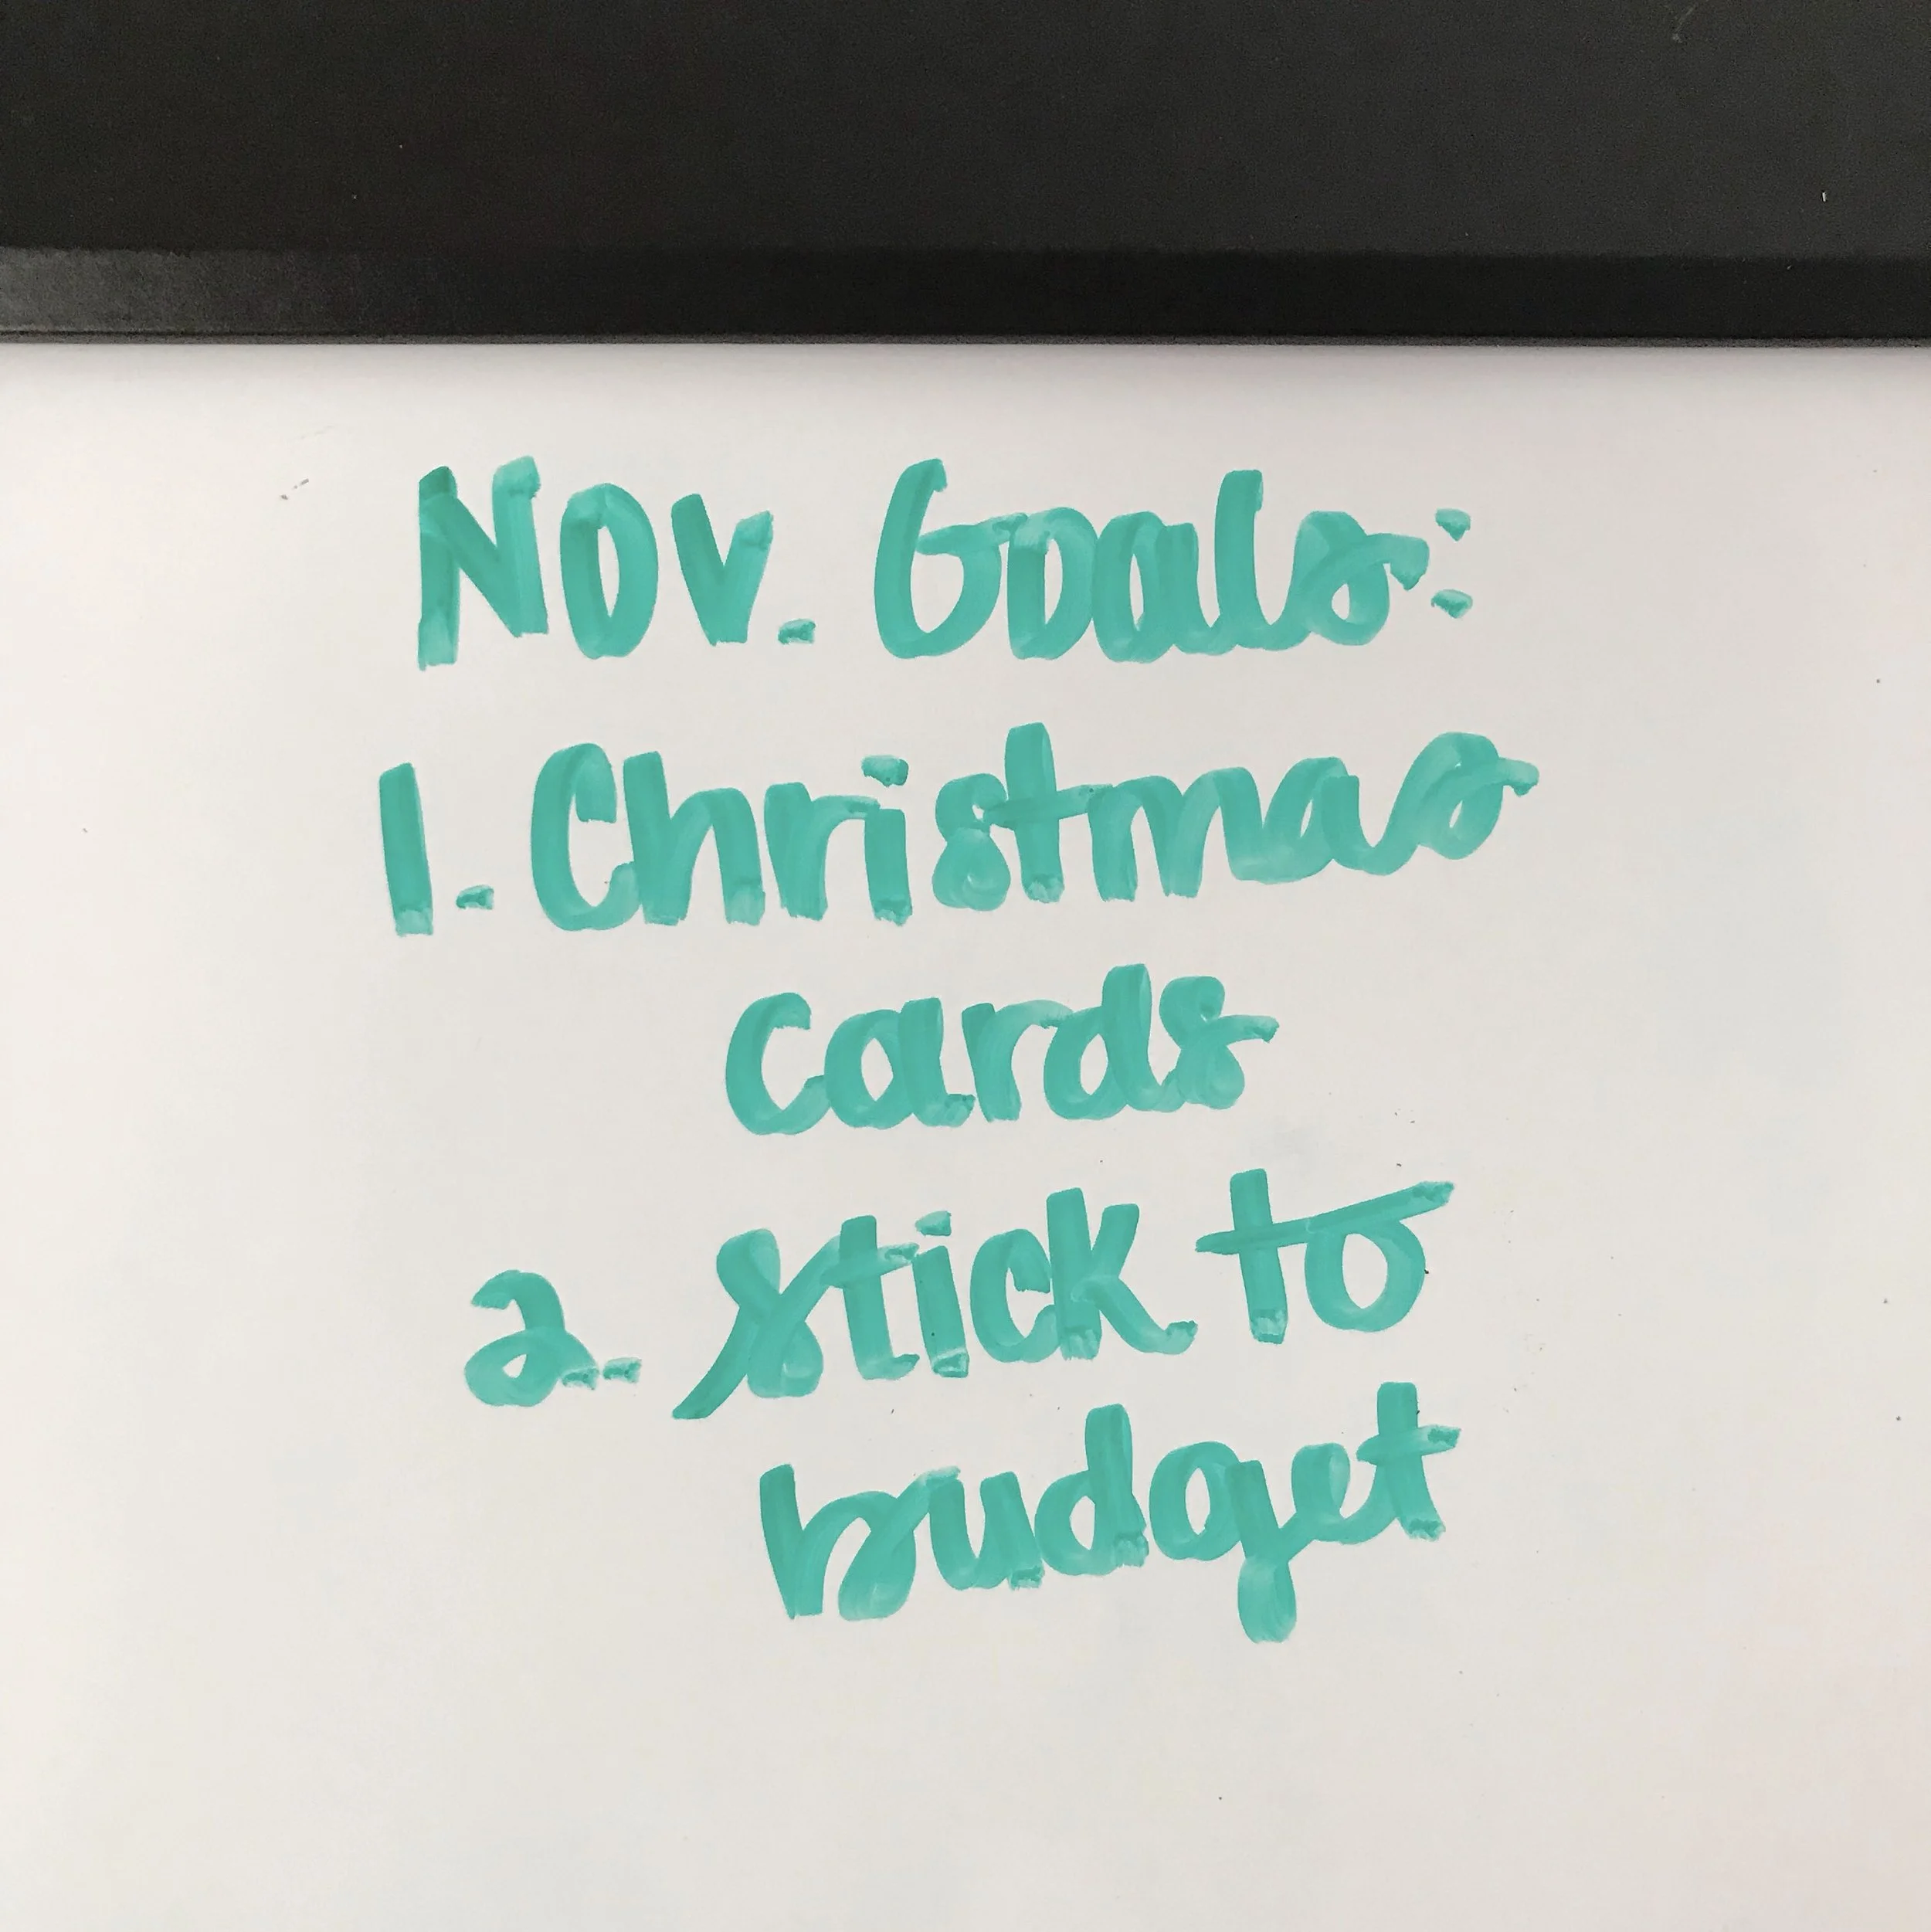 Nov. Goals:
1. Christmas
cards
2. Stick to
budget